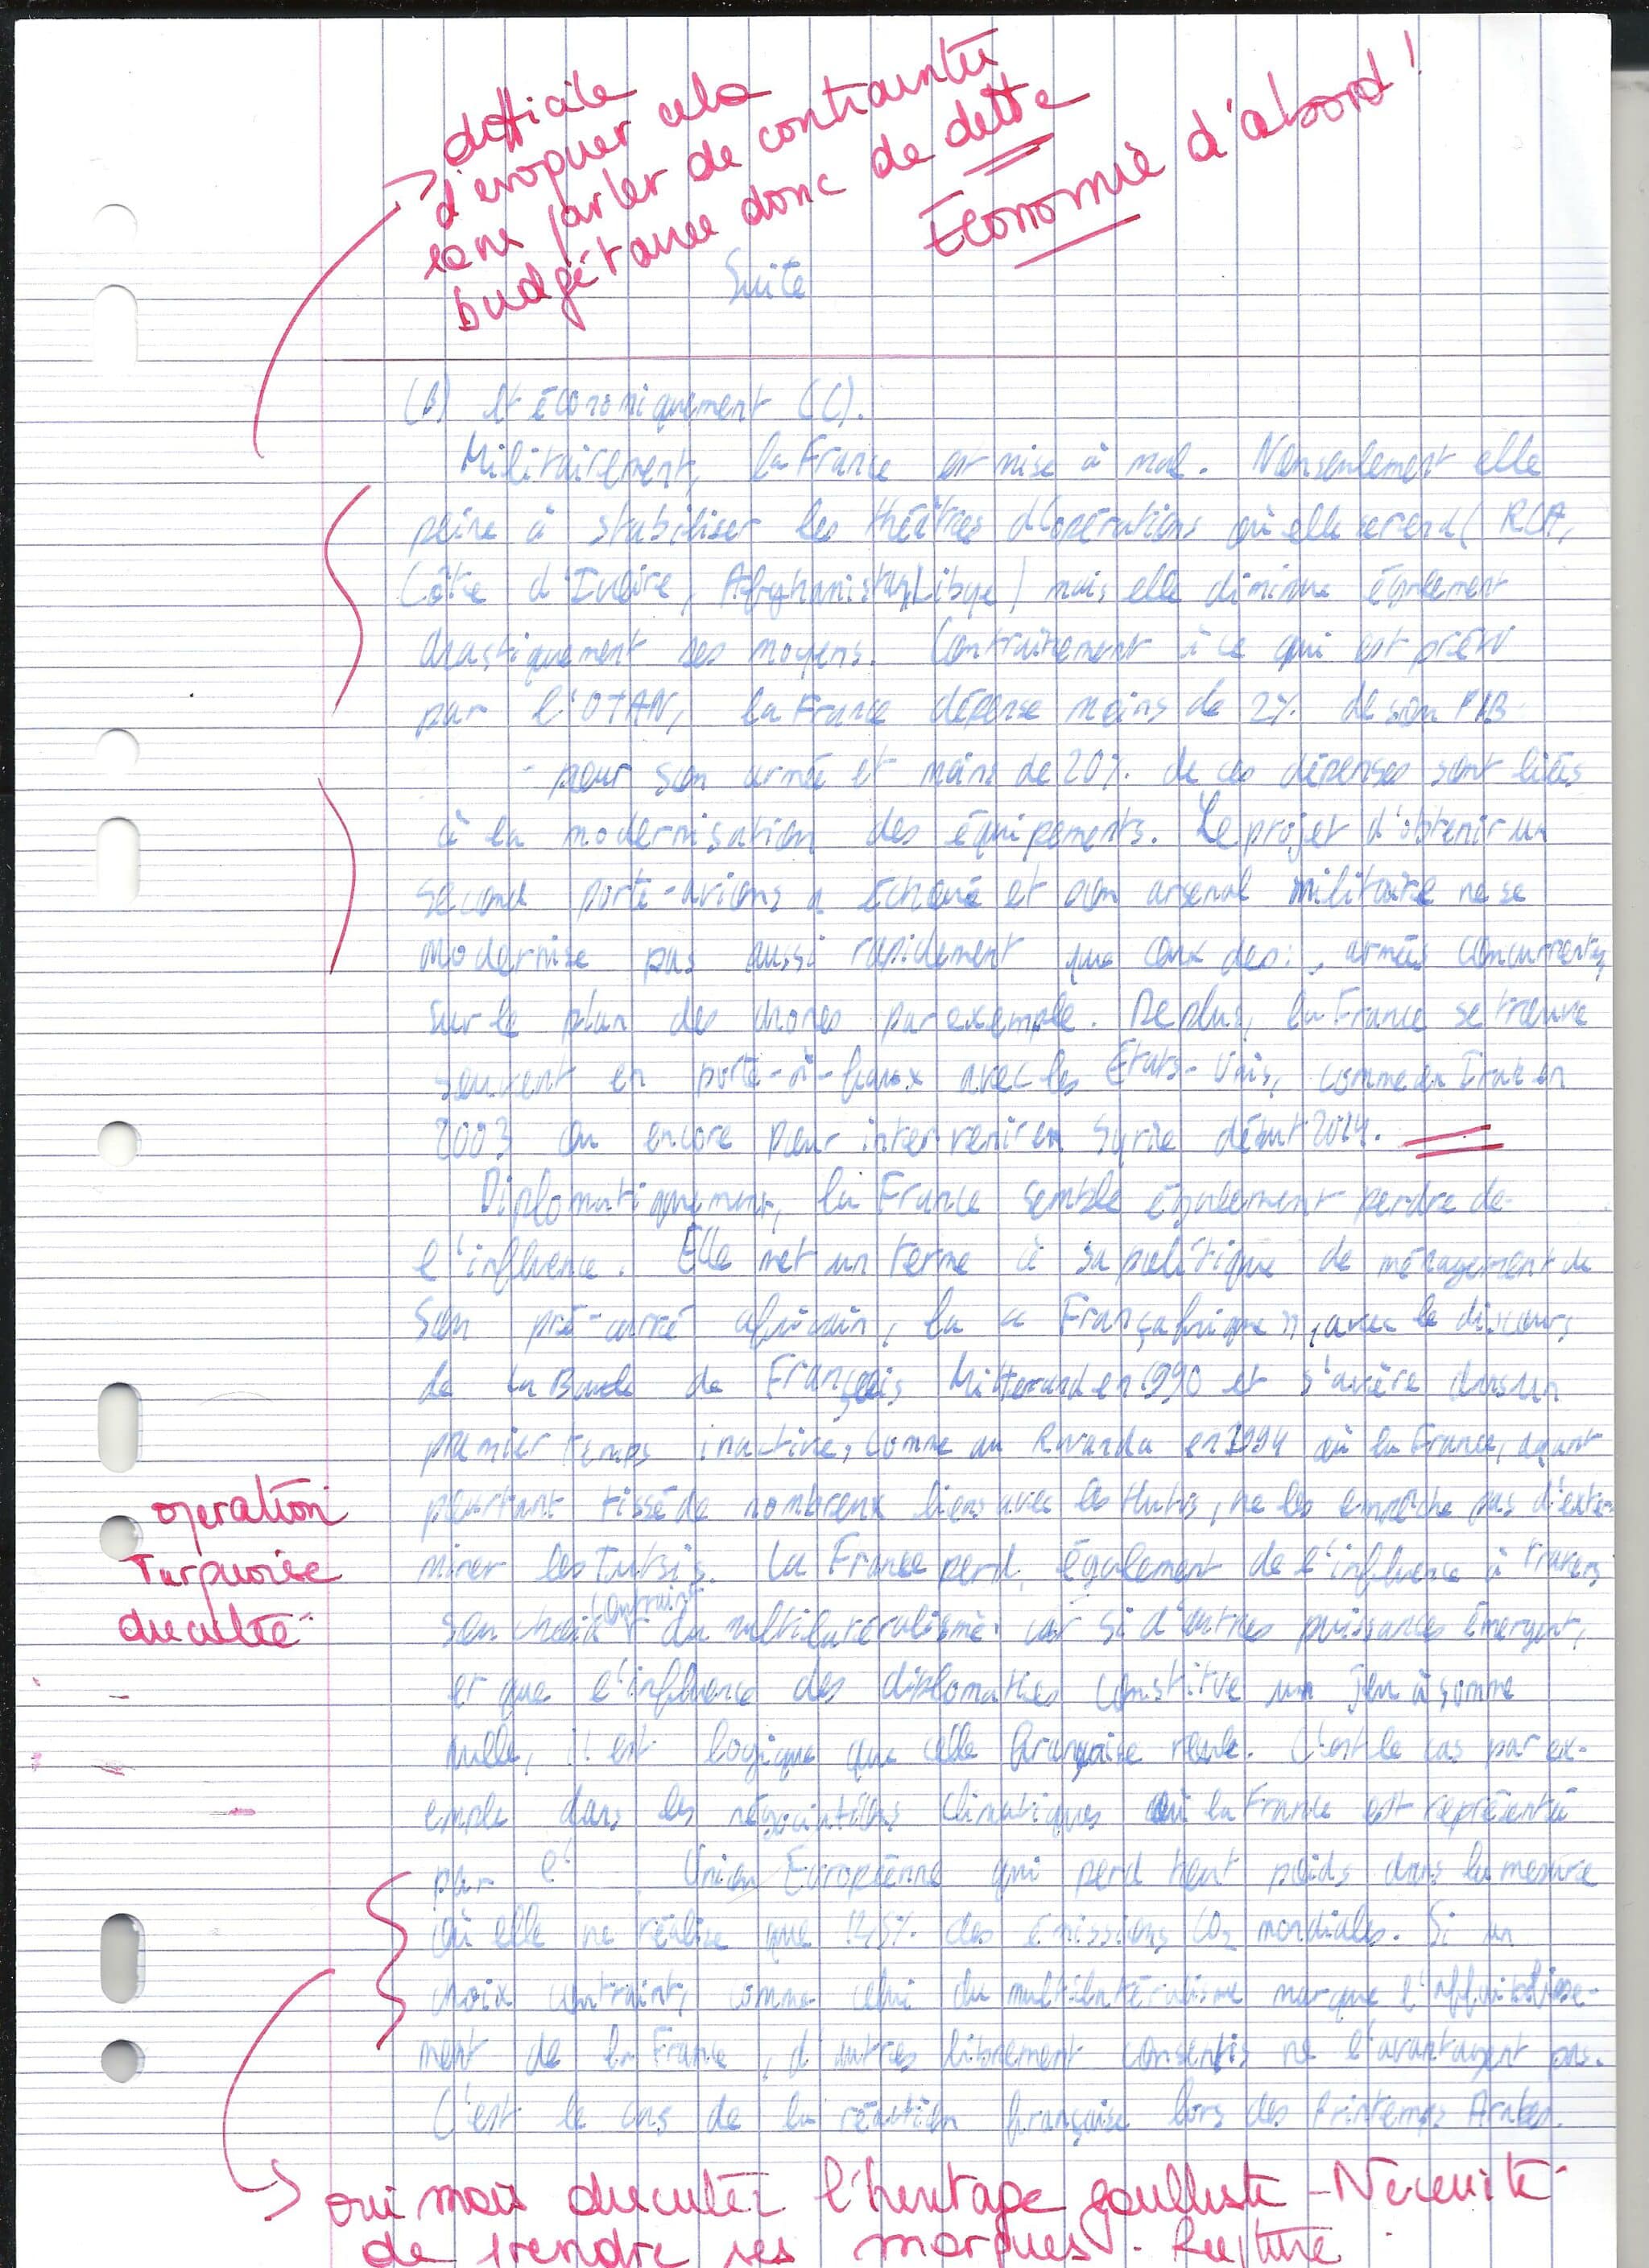 difficile
d'evoquer cela
sans parler de contraintes
budgétaire donc de dette
Economie d'abord !
Suite
(B) et économiquement (C).
Militairement, la France est mise à mal. Nonseulement elle
peine à stabiliser les théâtres d'opérations où elle se rend (RCA,
Côte d'Ivoire, Afghanistan, Libye) mais elle diminue également
drastiquement ses moyens. Contrairement à ce qui est prévu
par l'OTAN, la France dépense moins de 2% de son PIB
pour son armée et moins de 20% de ces dépenses sont liées
à la modernisation des équipements. Le projet d'obtenir un
second porte-avions a échoué et son arsenal militaire ne se
modernise pas aussi rapidement que ceux des armées concurrentes,
sur le plan des drones par exemple. De plus, la France se trouve
souvent en porte-à-faux avec les Etats-Unis, comme en Irak en
2003 ou encore pour intervenir en Syrie début 2014.
Diplomatiquement, la France semble également perdre de
l'influence. Elle met un terme à sa politique de ménagement de
son pré-carré africain, la « Françafrique », avec le discours
de la Baule de François Mitterand en 1990 et s'avère dans un
premier temps inactive, comme au Rwanda en 1994 où la France, ayant
pourtant tissé de nombreux liens avec les Hutus, ne les empêche pas d'exter-
miner les Tutsis. La France perd également de l'influence à travers
operation
Turquoise
discutée
son choix contraint du multilatéralisme car si d'autres puissances émergent,
et que l'influence des diplomaties constitue un jeu à somme
nulle, il est logique que celle française recule. C'est le cas par ex-
emple dans les négociations climatiques où la France est représentée
par l' Union Européenne qui perd tout poids dans la mesure
où elle ne réalise que 12,5% des émissions CO2 mondiales. Si un
choix contraint, comme celui du multilatéralisme marque l'affaiblisse-
ment de la France, d'autres librement consentis ne l'avantagent pas.
C'est le cas de la réaction française lors des Printemps Arabes.
oui mais discuter l'heritage gaulliste - Necessité
de prendre ses marques.